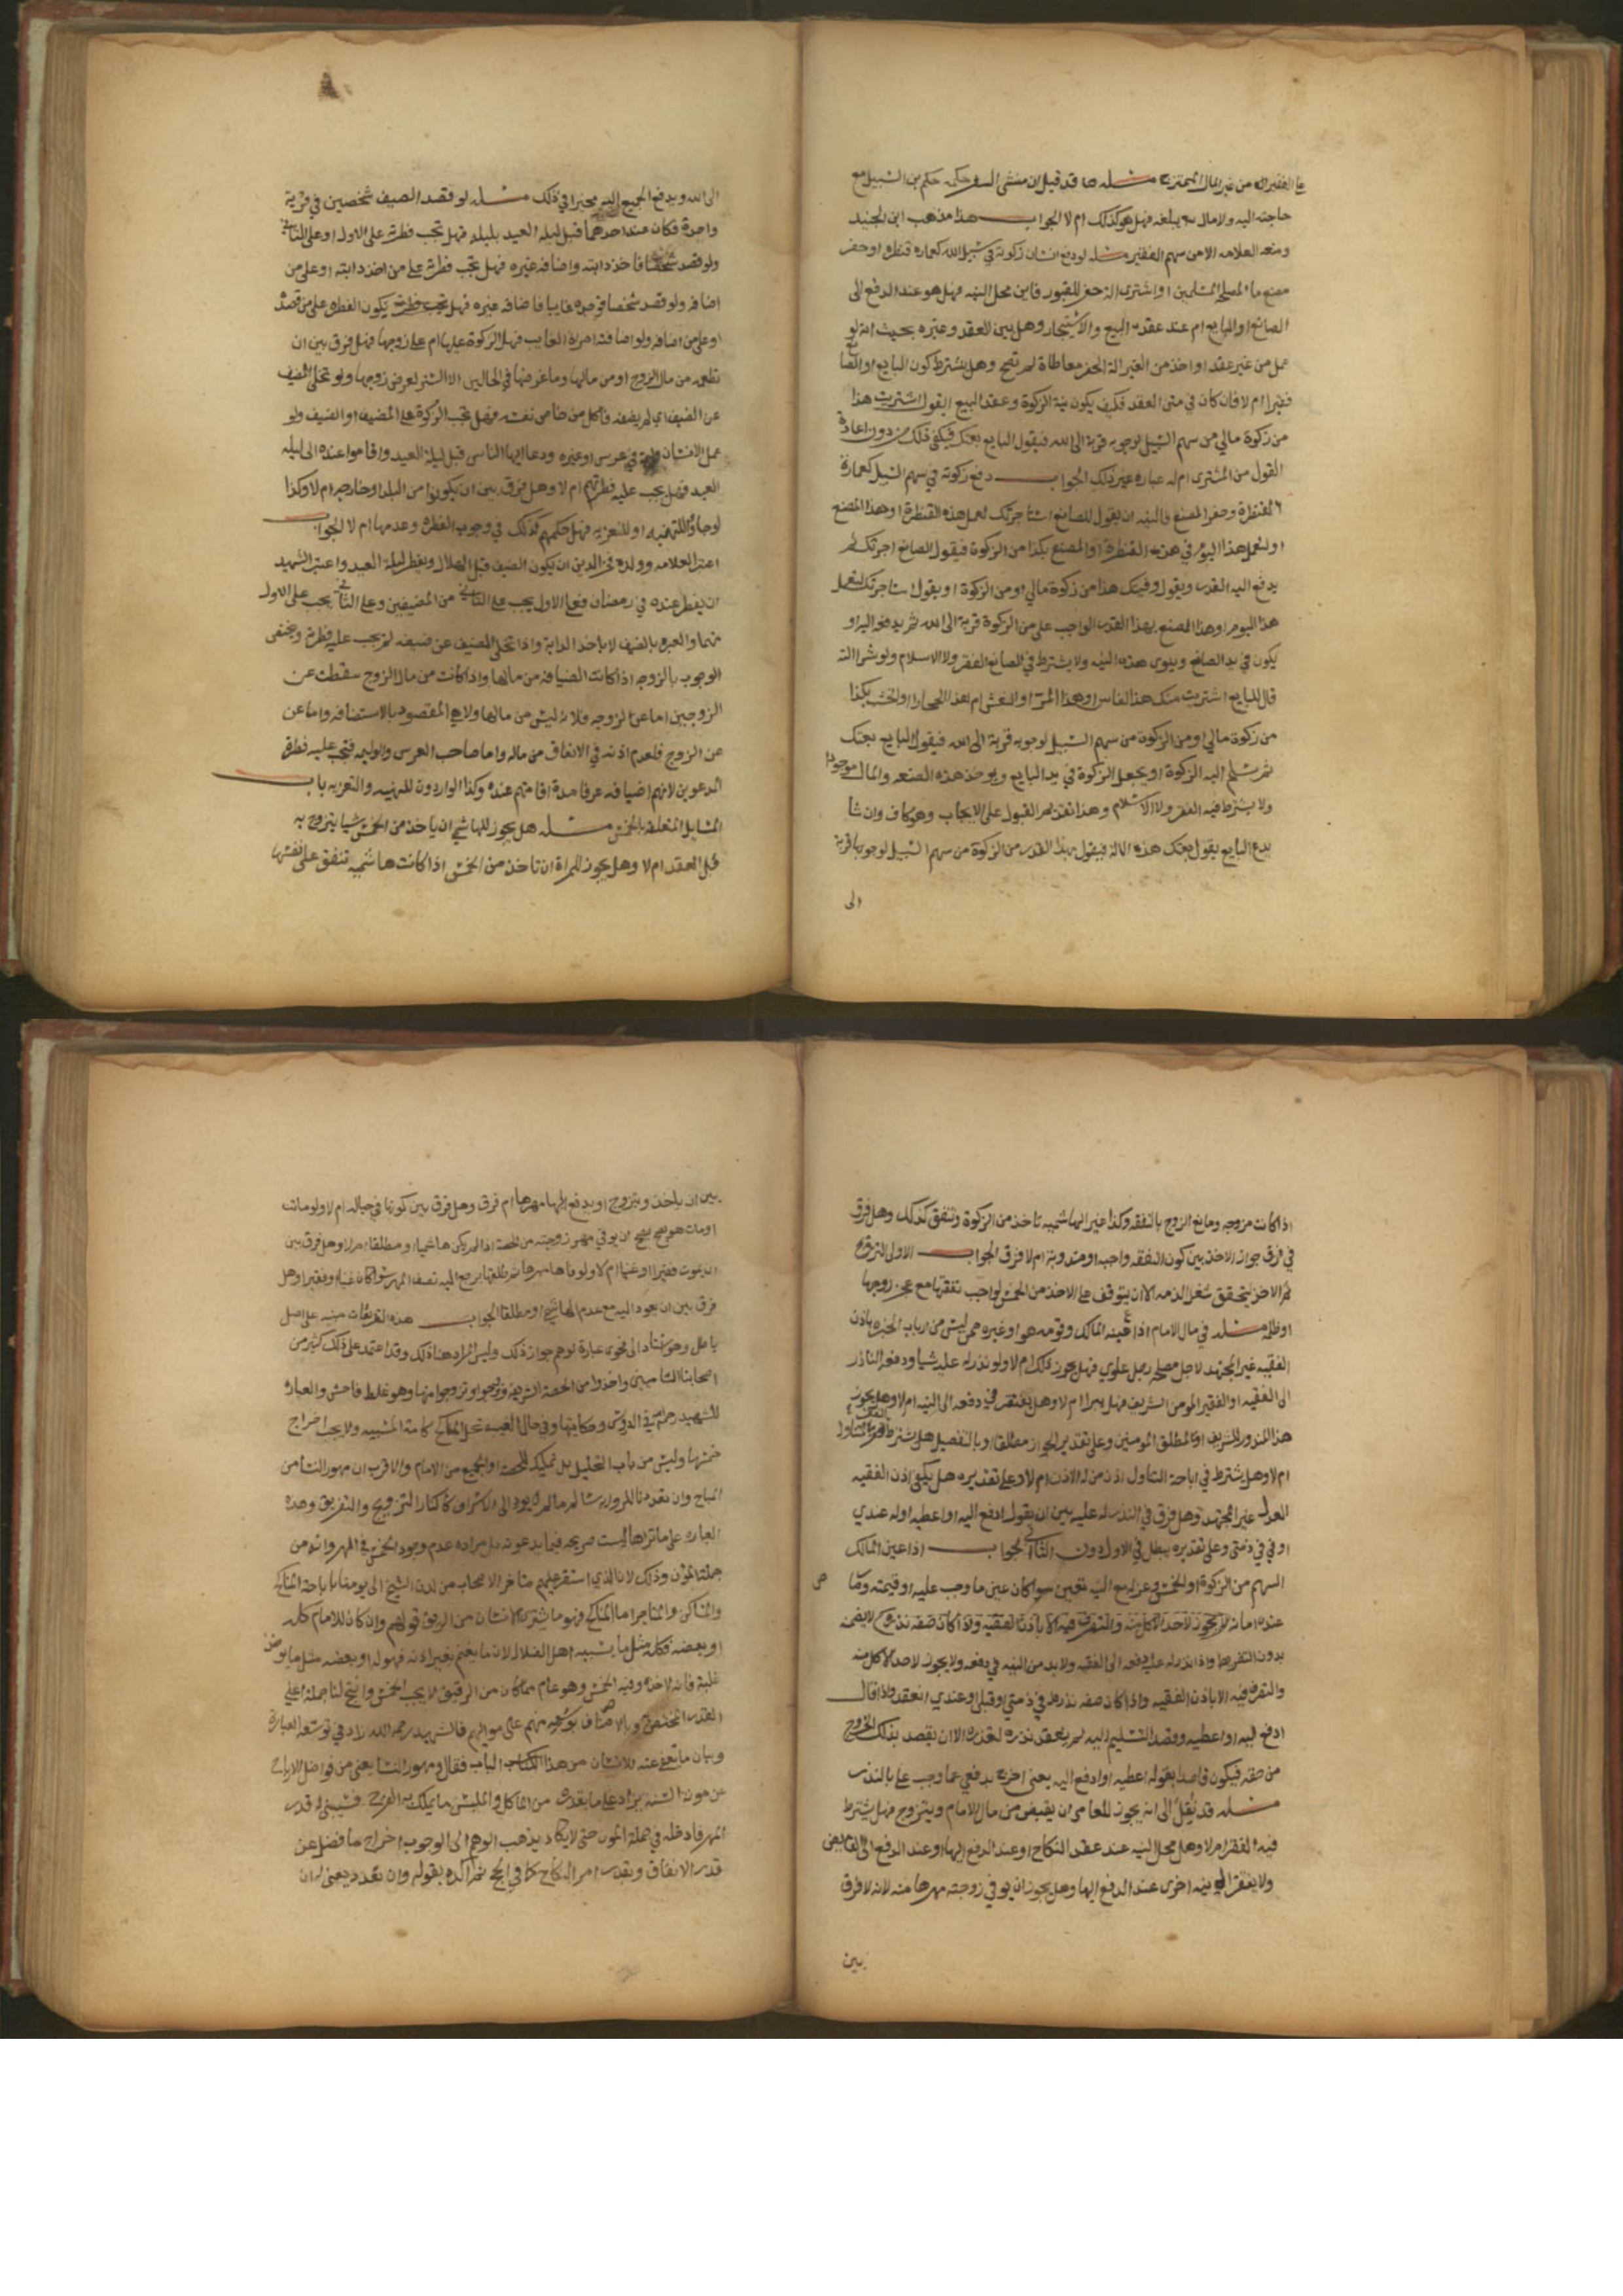 حاجته اليه ولا مال له يبلغه فهل هو كذلك ام لا الجواب هذا مذهب ابن الجنيد
ومنعه العلامه الا من سهم الفقير مسئله لو دفع انسان زكوته في سبيل الله كعماره قنطره او حفر
الصانع او البايع ام عند عقد البيع والاستيجار وهل بين العقد وغيره بحيث انه لو
فقيرا ام لا فان كان في متن العقد فكيف يكون نية الزكوة وعقد البيع ايقول اشتريت هذا
من زكوة مالي من سهم السبيل لوجوبه قربة الى الله فيقول البايع بعتك فيكفي ذلك من دون اعادة
القول من المشترى ام له عباره غير ذلك الجواب دفع زكوته في سهم السبيل كعمارة
القنطرة وحفر المصنع فالنيه ان يقول للصانع استاجرتك لعمل هذه القنطرة او هذا المصنع
او لتعمل هذا اليوم في هذه القنطرة او المصنع بكذا من الزكوة فيقول الصانع اجرتك ثم
يدفع اليه القدر ويقول وفيتك هذا من زكوة مالي او من الزكوة او يقول استاجرتك لتعمل
هذا اليوم او هذا المصنع بهذا القدر الواجب علي من الزكوة قربة الى الله ثم يدفعه اليه او
يكون في يد الصانع وينوى هذه النيه ولا يشترط في الصانع الفقر ولا الاسلام ولو شرا الة
قال للبايع اشتريت منك هذا الفاس او هذا المر او النعش ام هذا الحجار او الخشب بكذا
من زكوة مالي او من الزكوة من سهم السبيل لوجوبه قربة الى الله فيقول البايع بعتك
ثم يسلم اليه الزكوة او يجعل الزكوة في يد البايع ويوخذ هذه الصنعه والمال موجودا
ولا يشترط فيه الفقر ولا الاسلام وهذا تقديم القبول على الايجاب وهو كاف وان شا
يدع البايع يقول بعتك هذه الالة فيقول بهذا القدر من الزكوة من سهم السبيل لوجوبها قربة
الى
الى الله ويدفع الجميع اليه مخبرا في ذلك مسئله لو قصد الضيف شخصين في قرية
واحدة فكان عند احدهما قبل ليله العيد بليله فهل تجب فطرته على الاول او على الثاني
ولو قصد شخصا فاخذ دابته واضافه غيره فهل تجب فطرته على من اخذ دابته او على من
اضافه ولو قصد شخصا فوجده غايبا فاضافه غيره فهل تجب فطرته يكون الفطره على من قصده
او على من اضافه ولو اضافته امراة الغايب فهل الزكوة عليها ام على زوجها فهل فرق بين ان
تطعمه من مال الزوج او من مالها وما غرضها في الحالين الا الستر لعرض زوجها ولو تخلى المضيف
عن الضيف اى لم يضفه فاكل من خاص نفسه فهل تجب الزكوة على المضيف او الضيف ولو
عمل الانسان وليمة في عرس او غيره ودعا ايها الناس قبل ليلة العيد واقاموا عنده الى ليله
العيد فهل يجب عليه فطرتهم ام لا وهل فرق بين ان يكونوا من البلد او خارجه ام لا وكذا
لو جاؤا للتهنيه او للتعزيه فهل حكمهم كذلك في وجوب الفطره وعدمها ام لا الجواب
اعتبر العلامه وولده فخر الدين ان يكون الضيف قبل الهلال ويفطر ليلة العيد واعتبر الشهيد
ان يفطر عنده في رمضان فعلى الاول يجب على الثاني من المضيفين وعلى الثاني يجب على الاول
منهما والعبره بالضيف لا باخذ الدابة واذا تخلى المضيف عن ضيفه لم يجب عليه فطرته ويختص
الوجوب بالزوجه اذا كانت الضيافه من مالها واذا كانت من مال الزوج سقطت عن
الزوجين اما عن الزوجه فلانه ليس من مالها ولا هي المقصود بالاستضافه واما عن
عن الزوج فلعدم اذنه في الانفاق من ماله واما صاحب العرس والوليمه فتجب عليه فطرة
المدعوين لانهم اضيافه عرفا مدة اقامتهم عنده وكذا الواردون للتهنيه والتعزيه باب
المسايل المتعلقه بالخمس مسئله هل يجوز للهاشمي ان ياخذ من الخمس شيا يتزوج به
قبل العقد ام لا وهل يجوز للمراة ان تاخذ من الخمس اذا كانت هاشميه تنفق على نفسها
اذا كانت مزوجه ومانع الزوج بالنفقه وكذا غير الهاشميه تاخذ من الزكوة وتنفق كذلك وهل فرق
في فرق جواز الاخذ بين كون النفقه واجبه او مندوبة ام لا فرق الجواب الاول التزويج
ثم الاخذ ليتحقق شغل الذمه الا ان يتوقف على الاخذ من الخمس لواجب نفقتها مع عجز زوجها
او ظلمه مسئله في مال الامام اذا عينه المالك وقومه هو او غيره ممن ليس من ارباب الخبره باذن
الفقيه غير المجتهد لاجل مصلحه رجل علوي فهل يجوز ذلك ام لا ولو نذر له عليه شيا ودفعه الناذر
الى الفقيه او الفقير المومن الشريف فهل يبرا ام لا وهل يفتقر في دفعه الى النيه ام لا وهل يجوز
هذا المنذور للشريف او لمطلق المومنين وعلى تقدير الجواز مطلقا او بالتفصيل هل يشترط
ام لا وهل يشترط في اباحة التناول اذن من له الاذن ام لا وعلى تقديره هل يكفى اذن الفقيه
العدل غير المجتهد وهل فرق في النذر له عليه بين ان يقول ادفع اليه او اعطيه او له عندي
او في ذمتى وعلى تقديره يبطل في الاول دون الثاني الجواب اذا عين المالك
السهم من الزكوة او الخمس وعزله مع النيه تعين سواء كان عين ما وجب عليه او قيمته وكان
عنده امانه لا يجوز لاحد الاكل منه والتصرف فيه الا باذن الفقيه واذا كان صفه نذره لا يضمنه
بدون التفريط واذا نذر له عليه دفعه الى الفقيه ولا بد من النيه في دفعه ولا يجوز لاحد الاكل منه
والتصرف فيه الا باذن الفقيه واذا كان صفه نذره في ذمتي او قبلي او عندي انعقد واذا قال
ادفع اليه او اعطيه وقصد التسليم اليه لم ينعقد نذره لغدره الا ان يقصد بذلك الخروج
من حقه فيكون قاصدا بقوله اعطيه او ادفع اليه يعنى اخرج بدفعي عما وجب علي بالنذر
مسئله قد نقل الى انه يجوز للعامى ان يقبض من مال الامام ويتزوج فهل يشترط
فيه الفقر ام لا وهل محل النيه عند عقد النكاح او عند الدفع اليها او عند الدفع الى القابض
ولا يفتقر الى نيه اخرى عند الدفع اليها وهل يجوز ان يوفي زوجته مهرها منه لانه لا فرق
بين
بين ان ياخذ ويتزوج او يدفع اليها مهرها ام فرق وهل فرق بين كونها في حباله ام لا ولو ماتت
او مات هو هل يصح ان يوفي مهر زوجته من الحصة اذا لم يكن هاشميا او مطلقا ام لا وهل فرق بين
ان يموت فقيرا او غنيا ام لا ولو وفاها مهرها ثم طلقها يرجع اليه نصف المهر سوا كان غنيا او فقيرا وهل
فرق بين ان يعود اليه مع عدم الهاشمي او مطلقا الجواب هذه التفريعات مبنيه على اصل
باطل وهو استناد الى فحوى عبارة توهم جواز ذلك وليس المراد هنا ذلك وقد اعتمد على ذلك كثير من
اصحابنا الشاميين واخذوا من الحصة الشريفه وتزوجوا منها وهو غلط فاحش والعباره
للشهيد رحمه الله في الدروس وحكايتها وفي حال الغيبه تحل المناكح كالامة المسبيه ولا يجب اخراج
خمسها وليس من باب التحليل بل تمليك للحصة او الجميع من الامام والاقرب ان مهور النسا من
العباره على ما تراها ليست صريحه فيما يدعونه بل مراده عدم وجود الخمس في المهر وانه من
جملة المؤن وذلك لان الذي استقر عليهم متاخر الاصحاب من لدن الشيخ الى يومنا باباحة المناكح
والمساكن والمتاجر اما المناكح فهو ما يشتريه الانسان من الرقيق فهو لهم وان كان للامام كله
او بعضه فكله مثل ما يسبيه اهل الضلال لان ما يغنم بغير اذنه فهو له او بعضه مثل ما يوخذ
المهر فادخله في جملة المؤن حتى لا يكاد يذهب الوهم الى الوجوب اخراج ما فضل عن
قدر الانفاق وبقدر امر النكاح كما في الحج ثم اكده بقوله وان تعدد يعنى لو ان